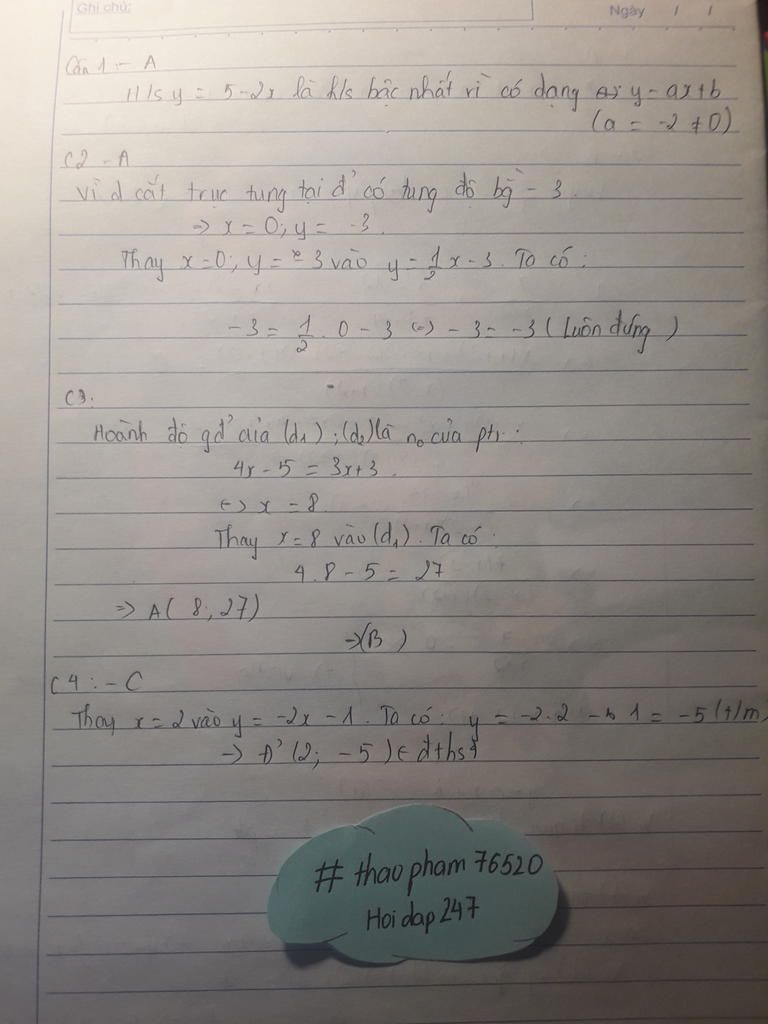 Ghi chú:
Ngày / /
Câu 1 :- A
H/s y = 5-2x là h/s bậc nhất vì có dạng y = ax+b
(a = -2 ≠ 0)
C2 - A
Vì d cắt trục tung tại đ' có tung độ bg - 3.
=> x = 0; y = -3.
Thay x=0; y = -3 vào y = 1/2 x - 3. Ta có :
-3 = 1/2 . 0 - 3 (=) - 3 = -3 ( Luôn đúng )
C3:
Hoành độ gđ' của (d1) ; (d2) là no của ptr :
4x - 5 = 3x+3.
<=> x = 8.
Thay x = 8 vào (d1). Ta có :
4 . 8 - 5 = 27
=> A( 8; 27)
->(B )
C4 : - C
Thay x = 2 vào y = -2x - 1. Ta có: y = -2.2 - 1 = -5 (t/m)
-> Đ' (2; -5) ∈ đths
# thao pham 76520
Hoi dap 247